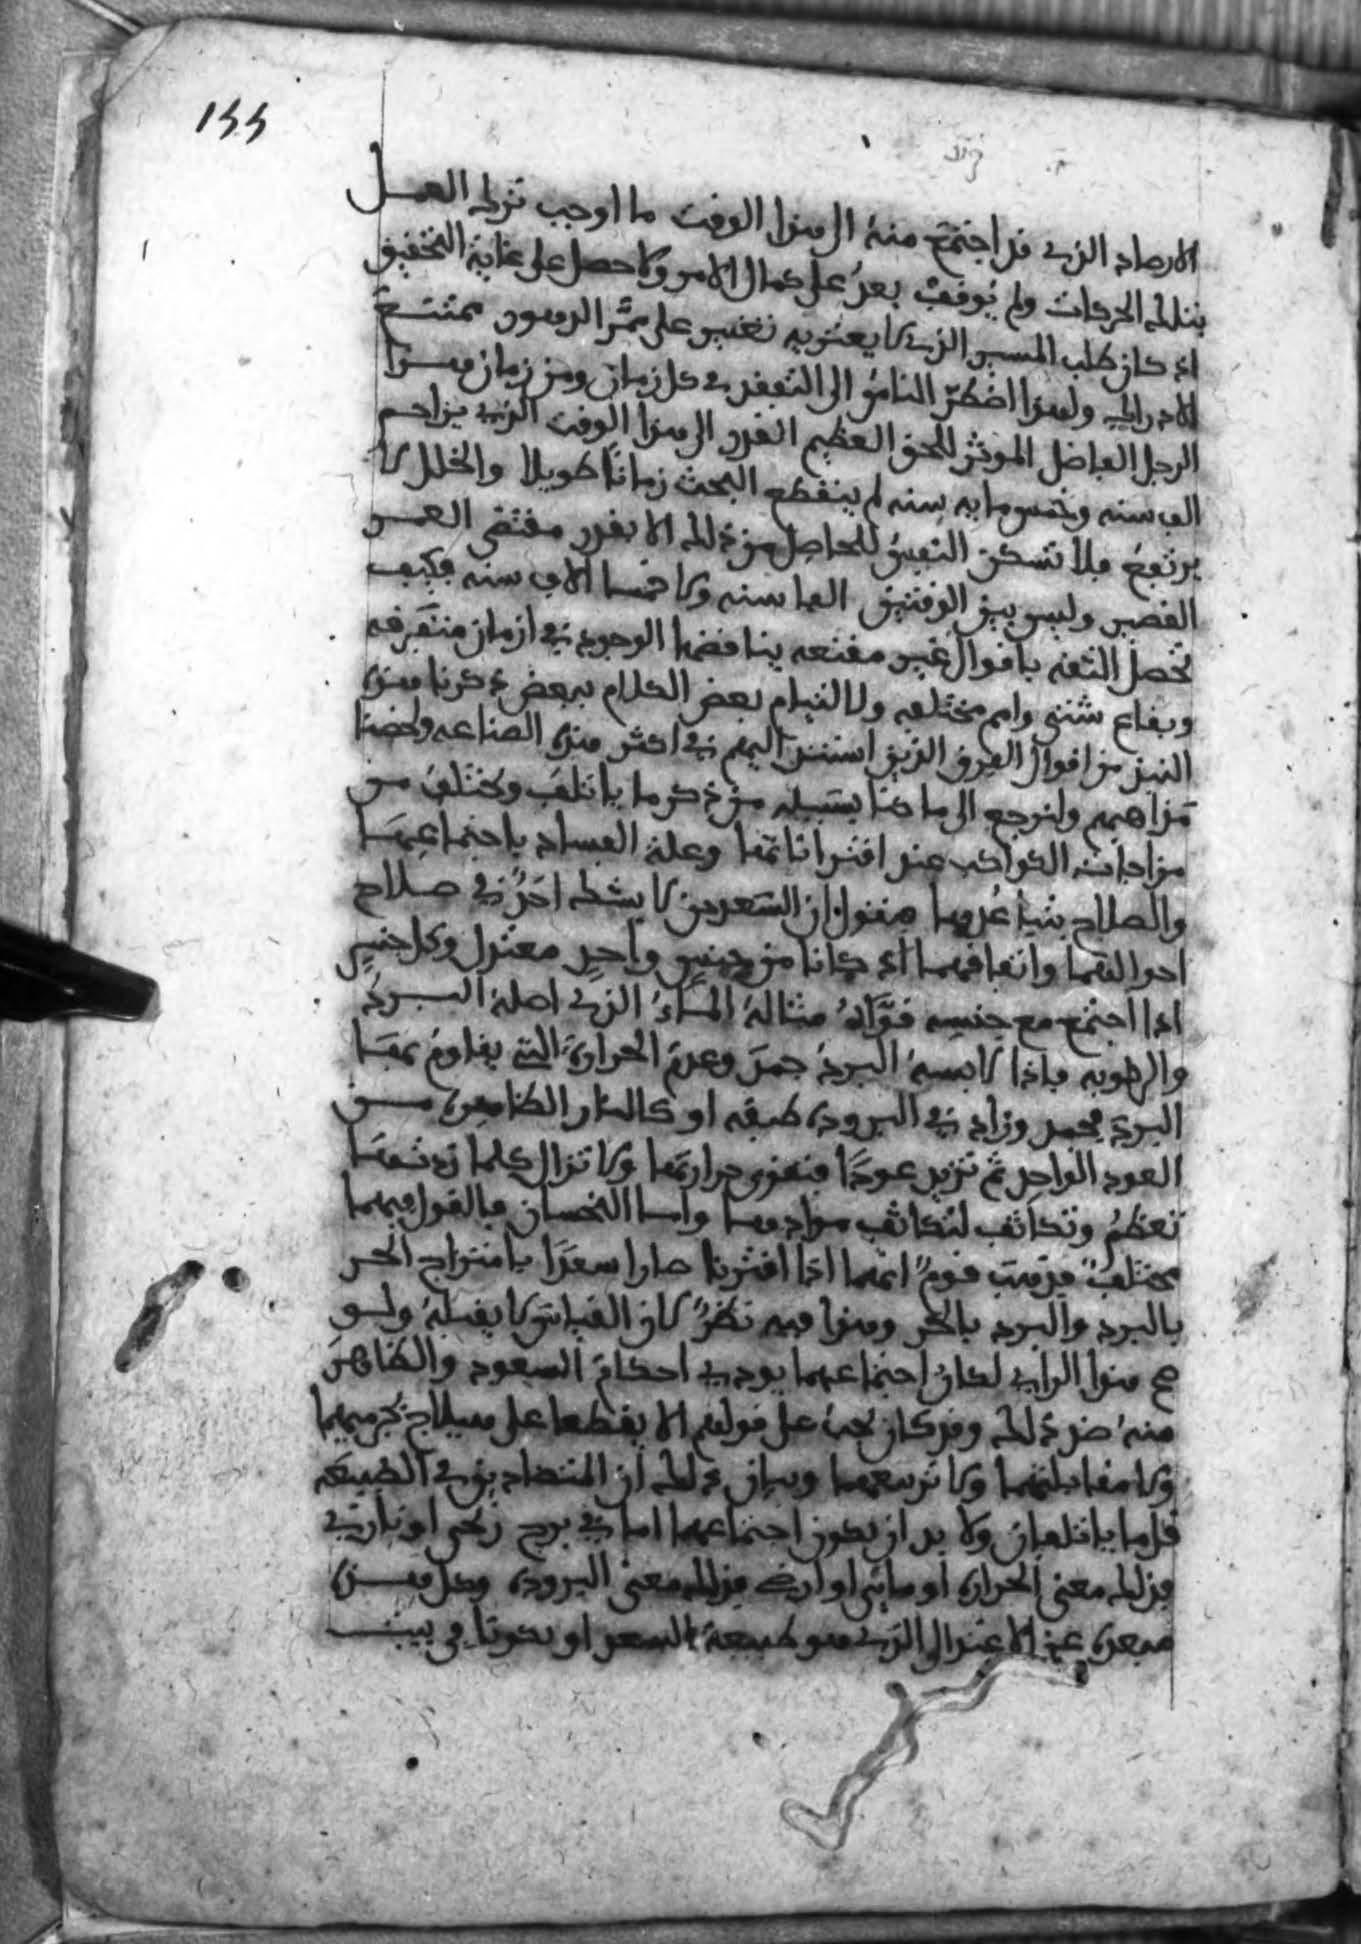 ١٤٤
الارصاد الذي قد اجتمع منه الى هذا الوقت ما اوجب ترك العمل
بتلك الحركات ولم يوقف بعد على كمال الامر ولا حصل على غاية التحقيق
اذ كان طلب المسير الذي لا يعتريه تغيير على ممر الدهور ممتنع
الادراك ولهذا اضطر الناس الى التفقد في كل زمان ومن زمان هذا
الرجل الفاضل الموثر للحق العظيم القدر الى هذا الوقت الذي يزاحم
الف سنه وخمس مايه سنه لم ينقطع البحث زمانا طويلا والخلل لا
يرتفع فلا تسكن النفس للحاصل من ذلك الا بقدر مقتضى العمر
القصير وليس بين الوقتين الفا سنه ولا خمسا الاف سنه فكيف
تحصل الثقه باقوال غير مقنعه يناقضها الوجود في ازمان متفرقه
وبقاع شتى وامم مختلفه ولالتيام بعض الكلام ببعض ذكرنا هذه
النبذ من اقوال الفرق الذين استند اليهم في اكثر هذه الصناعه ولخصنا
مذاهبهم ولنرجع الى ما كنا بسبيله من ذكر ما ياتلف ويختلف من
مزاجات الكواكب عند اقتراناتها وعلة الفساد باجتماعهما
والصلاح بتباعدهما فنقول ان السعدين لا يشك احد في صلاح
احوالهما واتفاقهما اذ كانا من جنس واحد معتدل وكل جنس
اذا اجتمع مع جنسه قواه مثاله الماء الذي اصله البرد
والرطوبه فاذا لابسه البرد جمد وعدم الحرارة التي يقاوم بها
البرد فجمد وزاد في البرودة طبقه او كالنار الظاهره من
العود الواحد ثم تزيد عودا فتقوى حرارتها ولا تزال كلما زدتها
تعظم وتتكاثف لتكاثف موادها واما النحسان فالقول فيهما
مختلف فذهب قوم انهما اذا اقترنا صارا سعدا بامتزاج الحر
بالبرد والبرد بالحر وهذا فيه نظر لان القياس لا يقبله ولو
صح هذا الراي لكان اجتماعهما يودي احكام السعود والظاهر
منه ضد ذلك وقد كان يجب على قولهم الا يقطعا على هيلاج بجرميهما
ولا مقابلتهما ولا تربيعهما وبيان ذلك ان المتضادين في الطبيعه
قلما ياتلفان ولا بد ان يكون اجتماعهما اما في برج ريحي او ناري
فذلك معنى الحراره او مايي او ارضي فذلك معنى البروده وكل هذه
مبعده عن الاعتدال الذي هو طبيعة السعد او يكونا في بيت